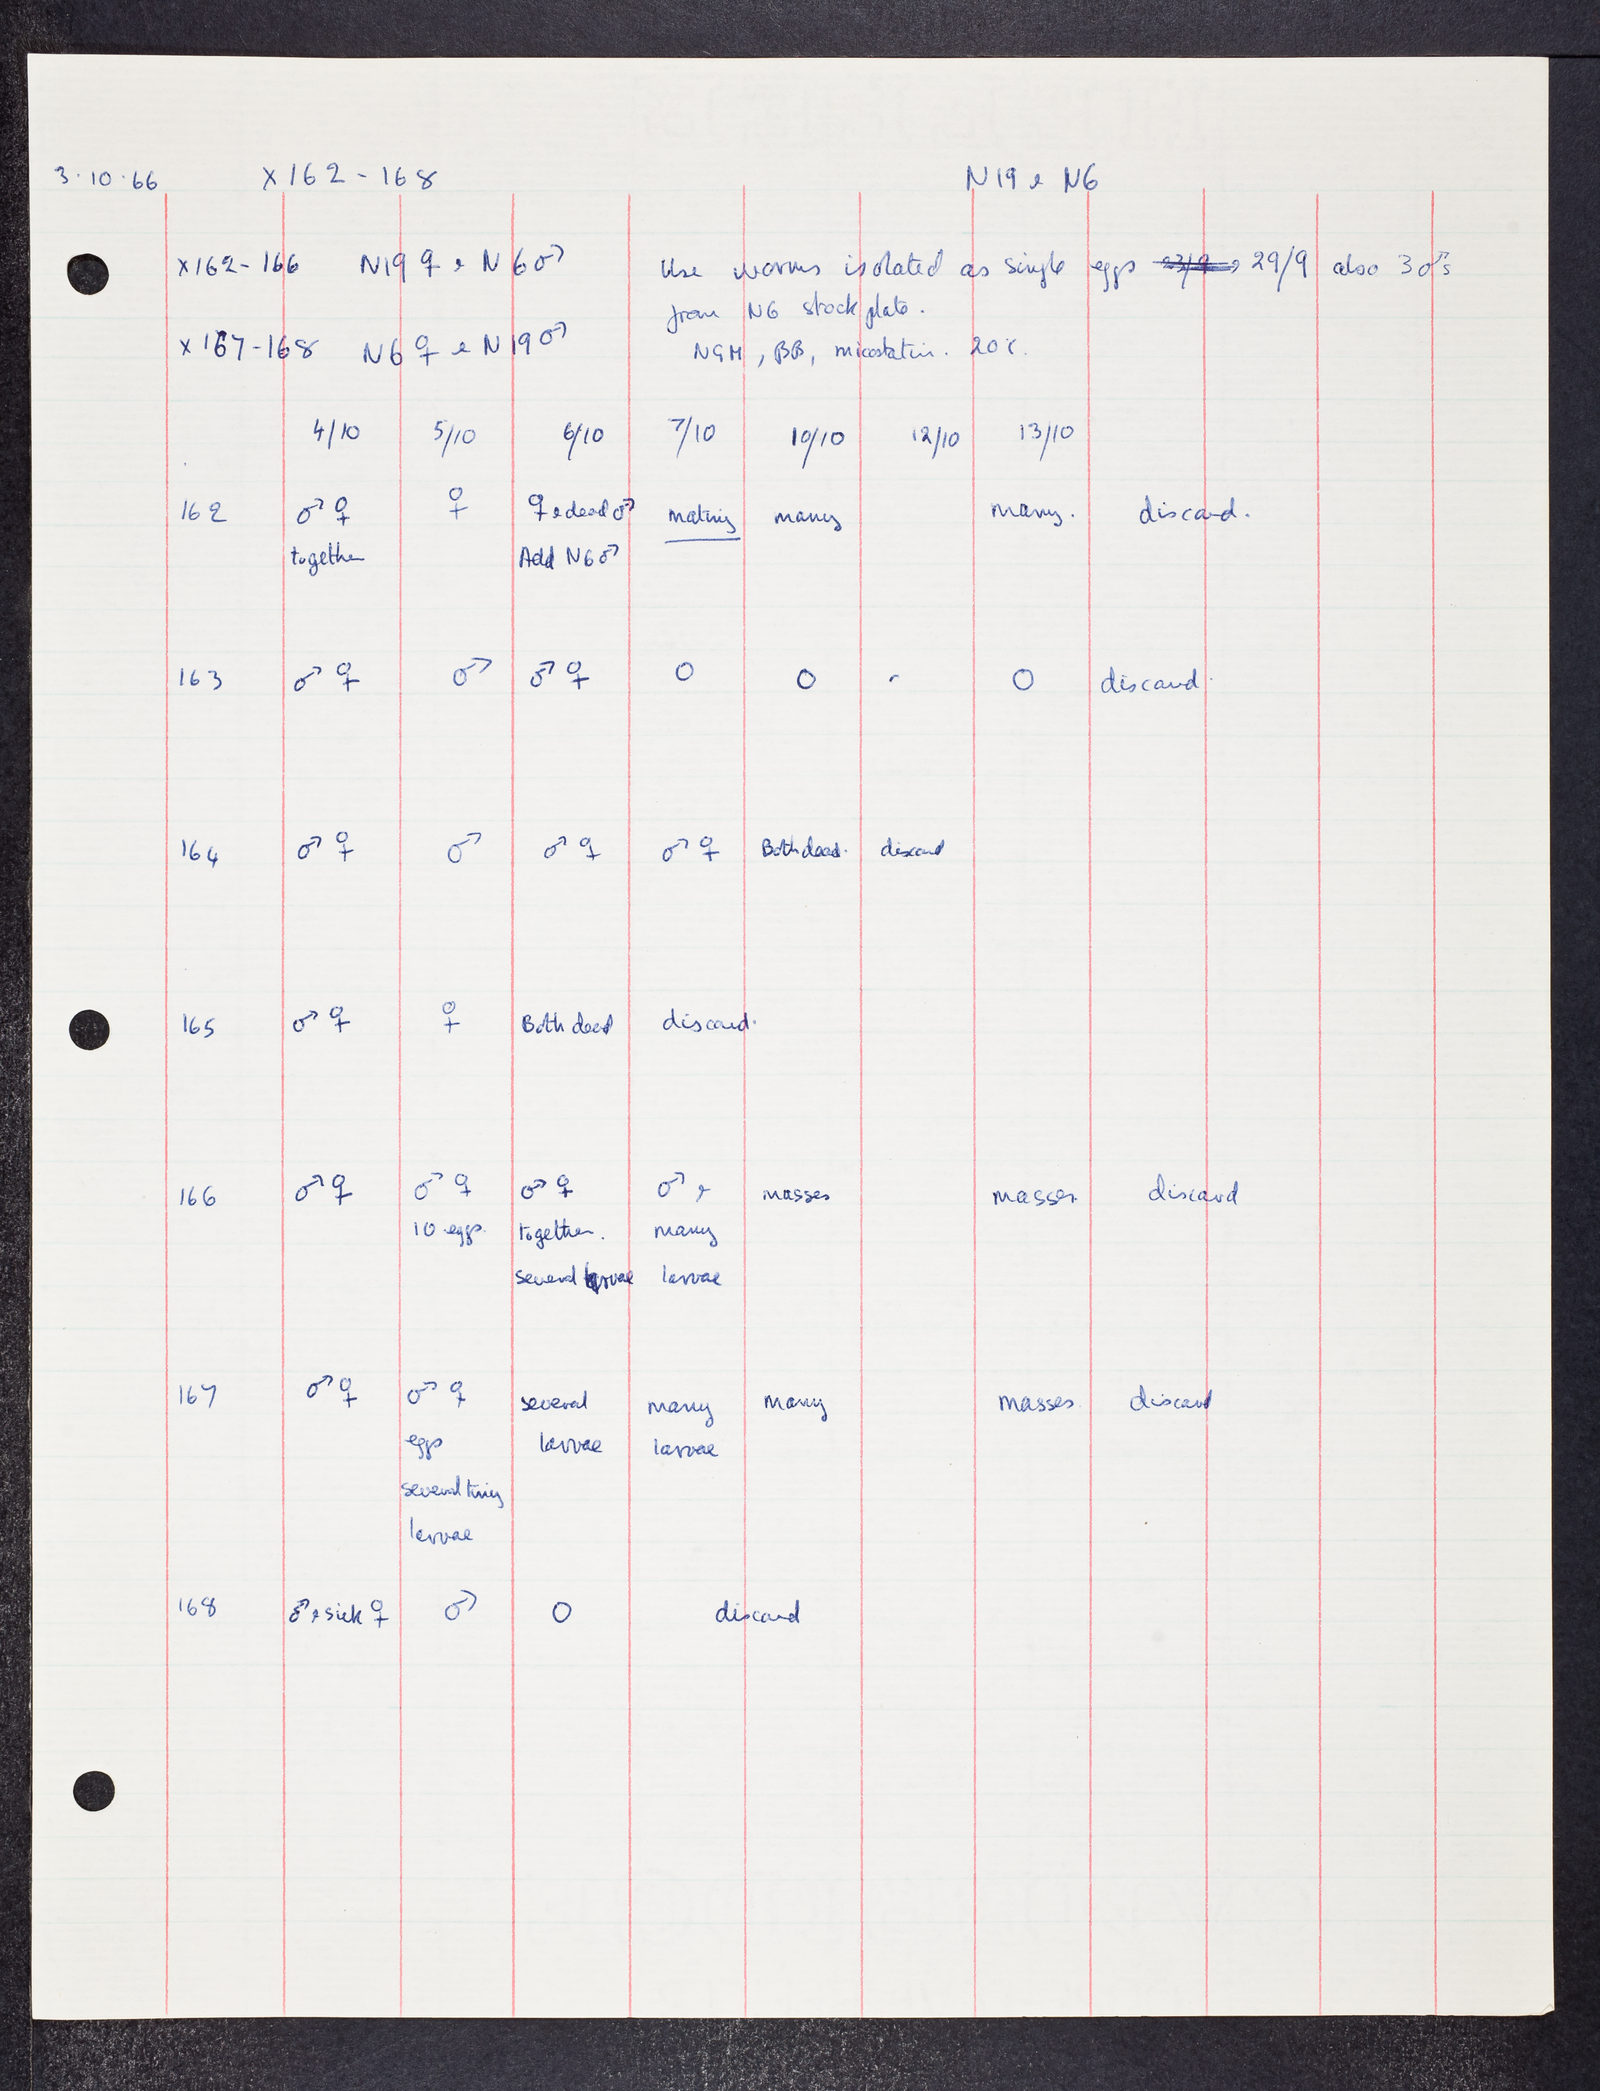 3.10.66 X162-168 N19 & N6
X162-166 N19 ♀ & N6 ♂ Use worms isolated as single eggs 29/9 also 3 ♂s
from N6 stock plate.
X167-168 N6 ♀ & N19 ♂ NGM, BB, micostatin. 20°.
4/10 5/10 6/10 7/10 10/10 12/10 13/10
162 ♂ ♀ ♀ ♀ & dead ♂ mating many many. discard.
together Add N6 ♂
163 ♂ ♀ ♂ ♂ ♀ O O - O discard.
164 ♂ ♀ ♂ ♂ ♀ ♂ ♀ Both dead. discard
165 ♂ ♀ ♀ Both dead discard.
166 ♂ ♀ ♂ ♀ ♂ ♀ ♂ & masses masses. discard
10 eggs. together. many
several larvae larvae
167 ♂ ♀ ♂ ♀ several many many masses. discard
eggs larvae larvae
several tiny
larvae
168 ♂ & sick ♀ ♂ O discard